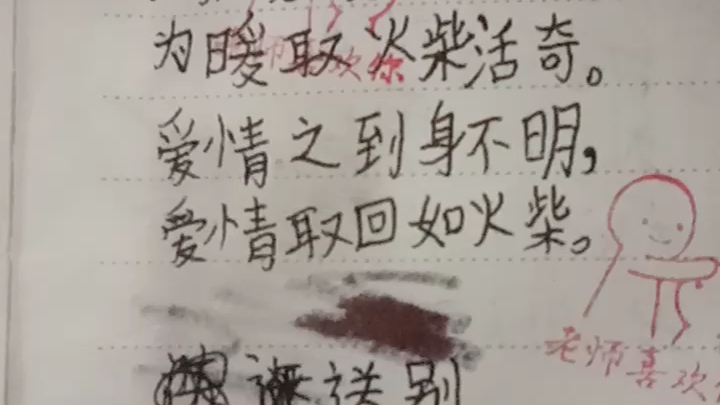 为暖取火柴活奇。
爱情之到身不明，
爱情取回如火柴。
老师喜欢
送别